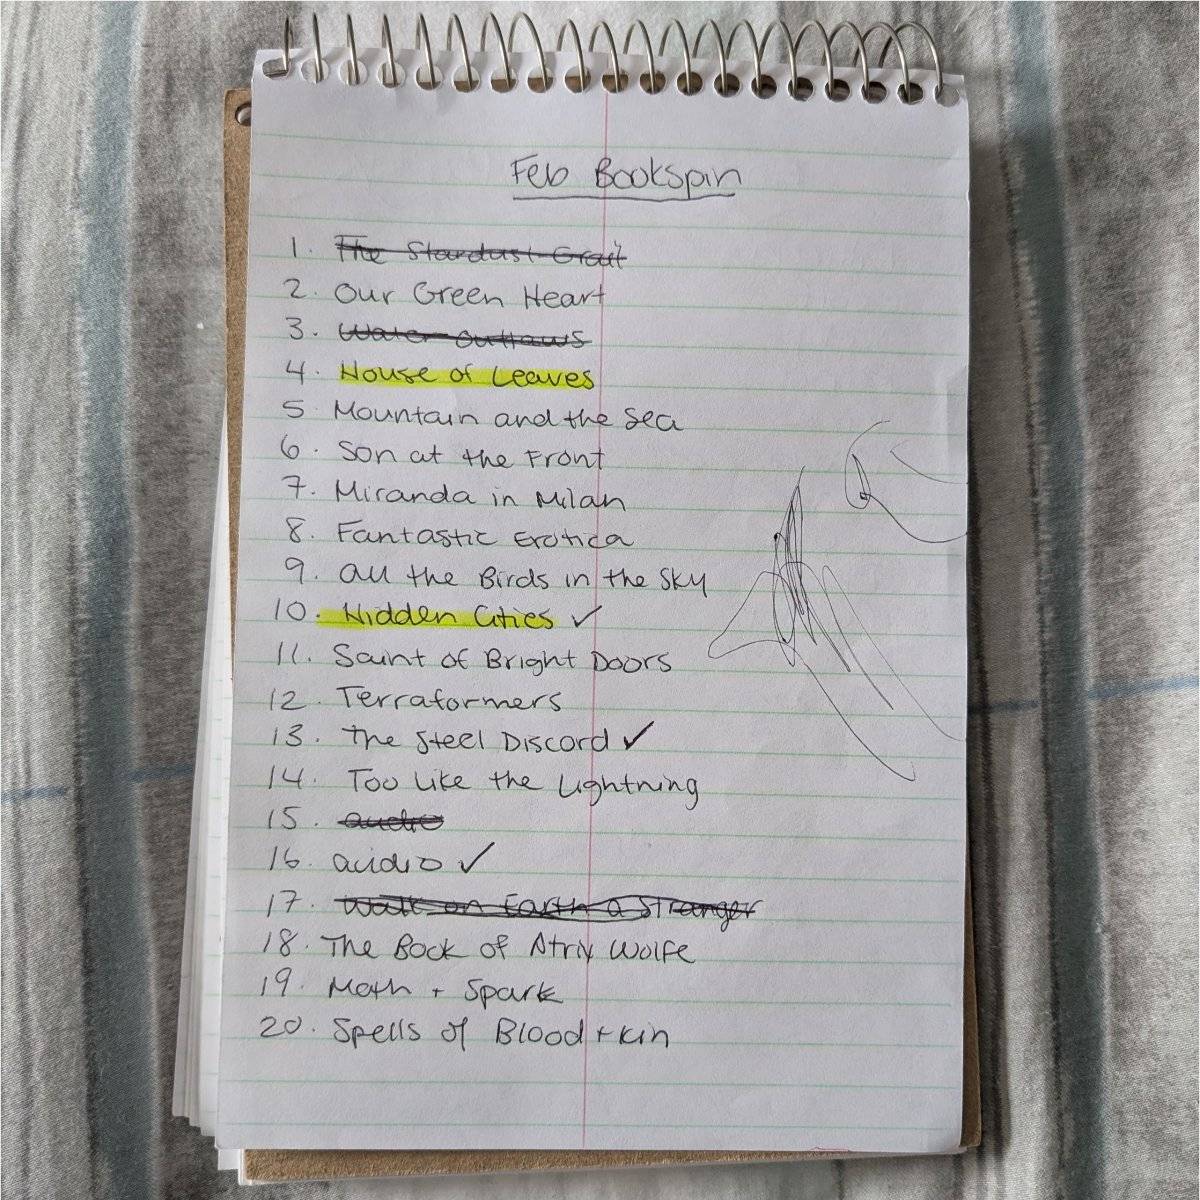 Feb Bookspin
1. The Stardust Grail
2. Our Green Heart
3. Water outlaws
4. House of Leaves
5 Mountain and the Sea
6. Son at the Front
7. Miranda in Milan
8. Fantastic Erotica
9. All the Birds in the Sky
10. Hidden Cities ✓
11. Saint of Bright Doors
12. Terraformers
13. The Steel Discord ✓
14. Too Like the Lightning
15. audio
16. audio ✓
17. Walk on Earth a Stranger
18. The Book of Atrix Wolfe
19. Moth + Spark
20. Spells of Blood + Kin